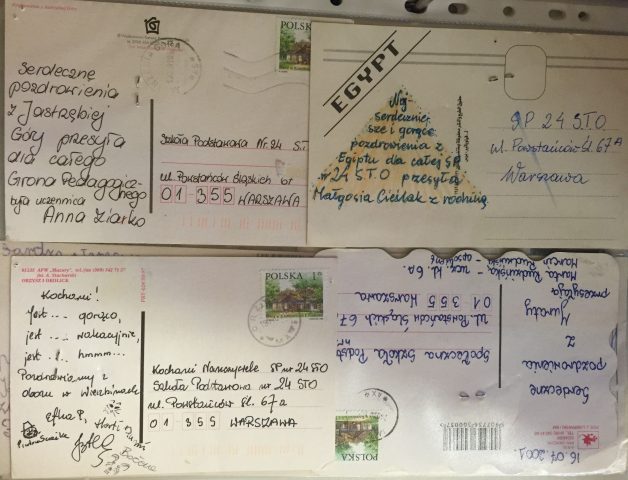 Serdeczne
pozdrowienia
z Jastrzębiej
Góry przesyła
dla całego
Grona Pedagogicz-
nego
była uczennica
Anna Ziarko
POLSKA
Szkoła Podstawowa Nr 24 S.T.
ul. Powstańców Śląskich 67
01-355 WARSZAWA
EGYPT
Naj
serdeczniej-
sze i gorące
pozdrowienia z
Egiptu dla całej SP
nr 24 STO przesyła
Małgosia Cieślak z rodziną
SP 24 STO
ul. Powstańców Śl. 67A
Warszawa
KLUB AFW "Mazury"
ORZYSZ I OKOLICE
Kochani!
Jest... gorąco,
jest... wakacyjnie,
jest... hmmm...
Pozdrawiamy z
obozu w Wierzbinach
POLSKA
Kochani Nauczyciele SP nr 24 STO
Szkoła Podstawowa nr 24 STO
ul. Powstańców Śl. 67a
01-355 WARSZAWA
Serdeczne
pozdrowienia
z
Juraty
przesyłają
Marta Rudzińska -
Marcin Rudziński -
ucz. kl. 6a.
Społeczna Szkoła Podst
ul. Powstańców Śląskich 67
01 355 Warszawa
POLSKA
16.07.2001.